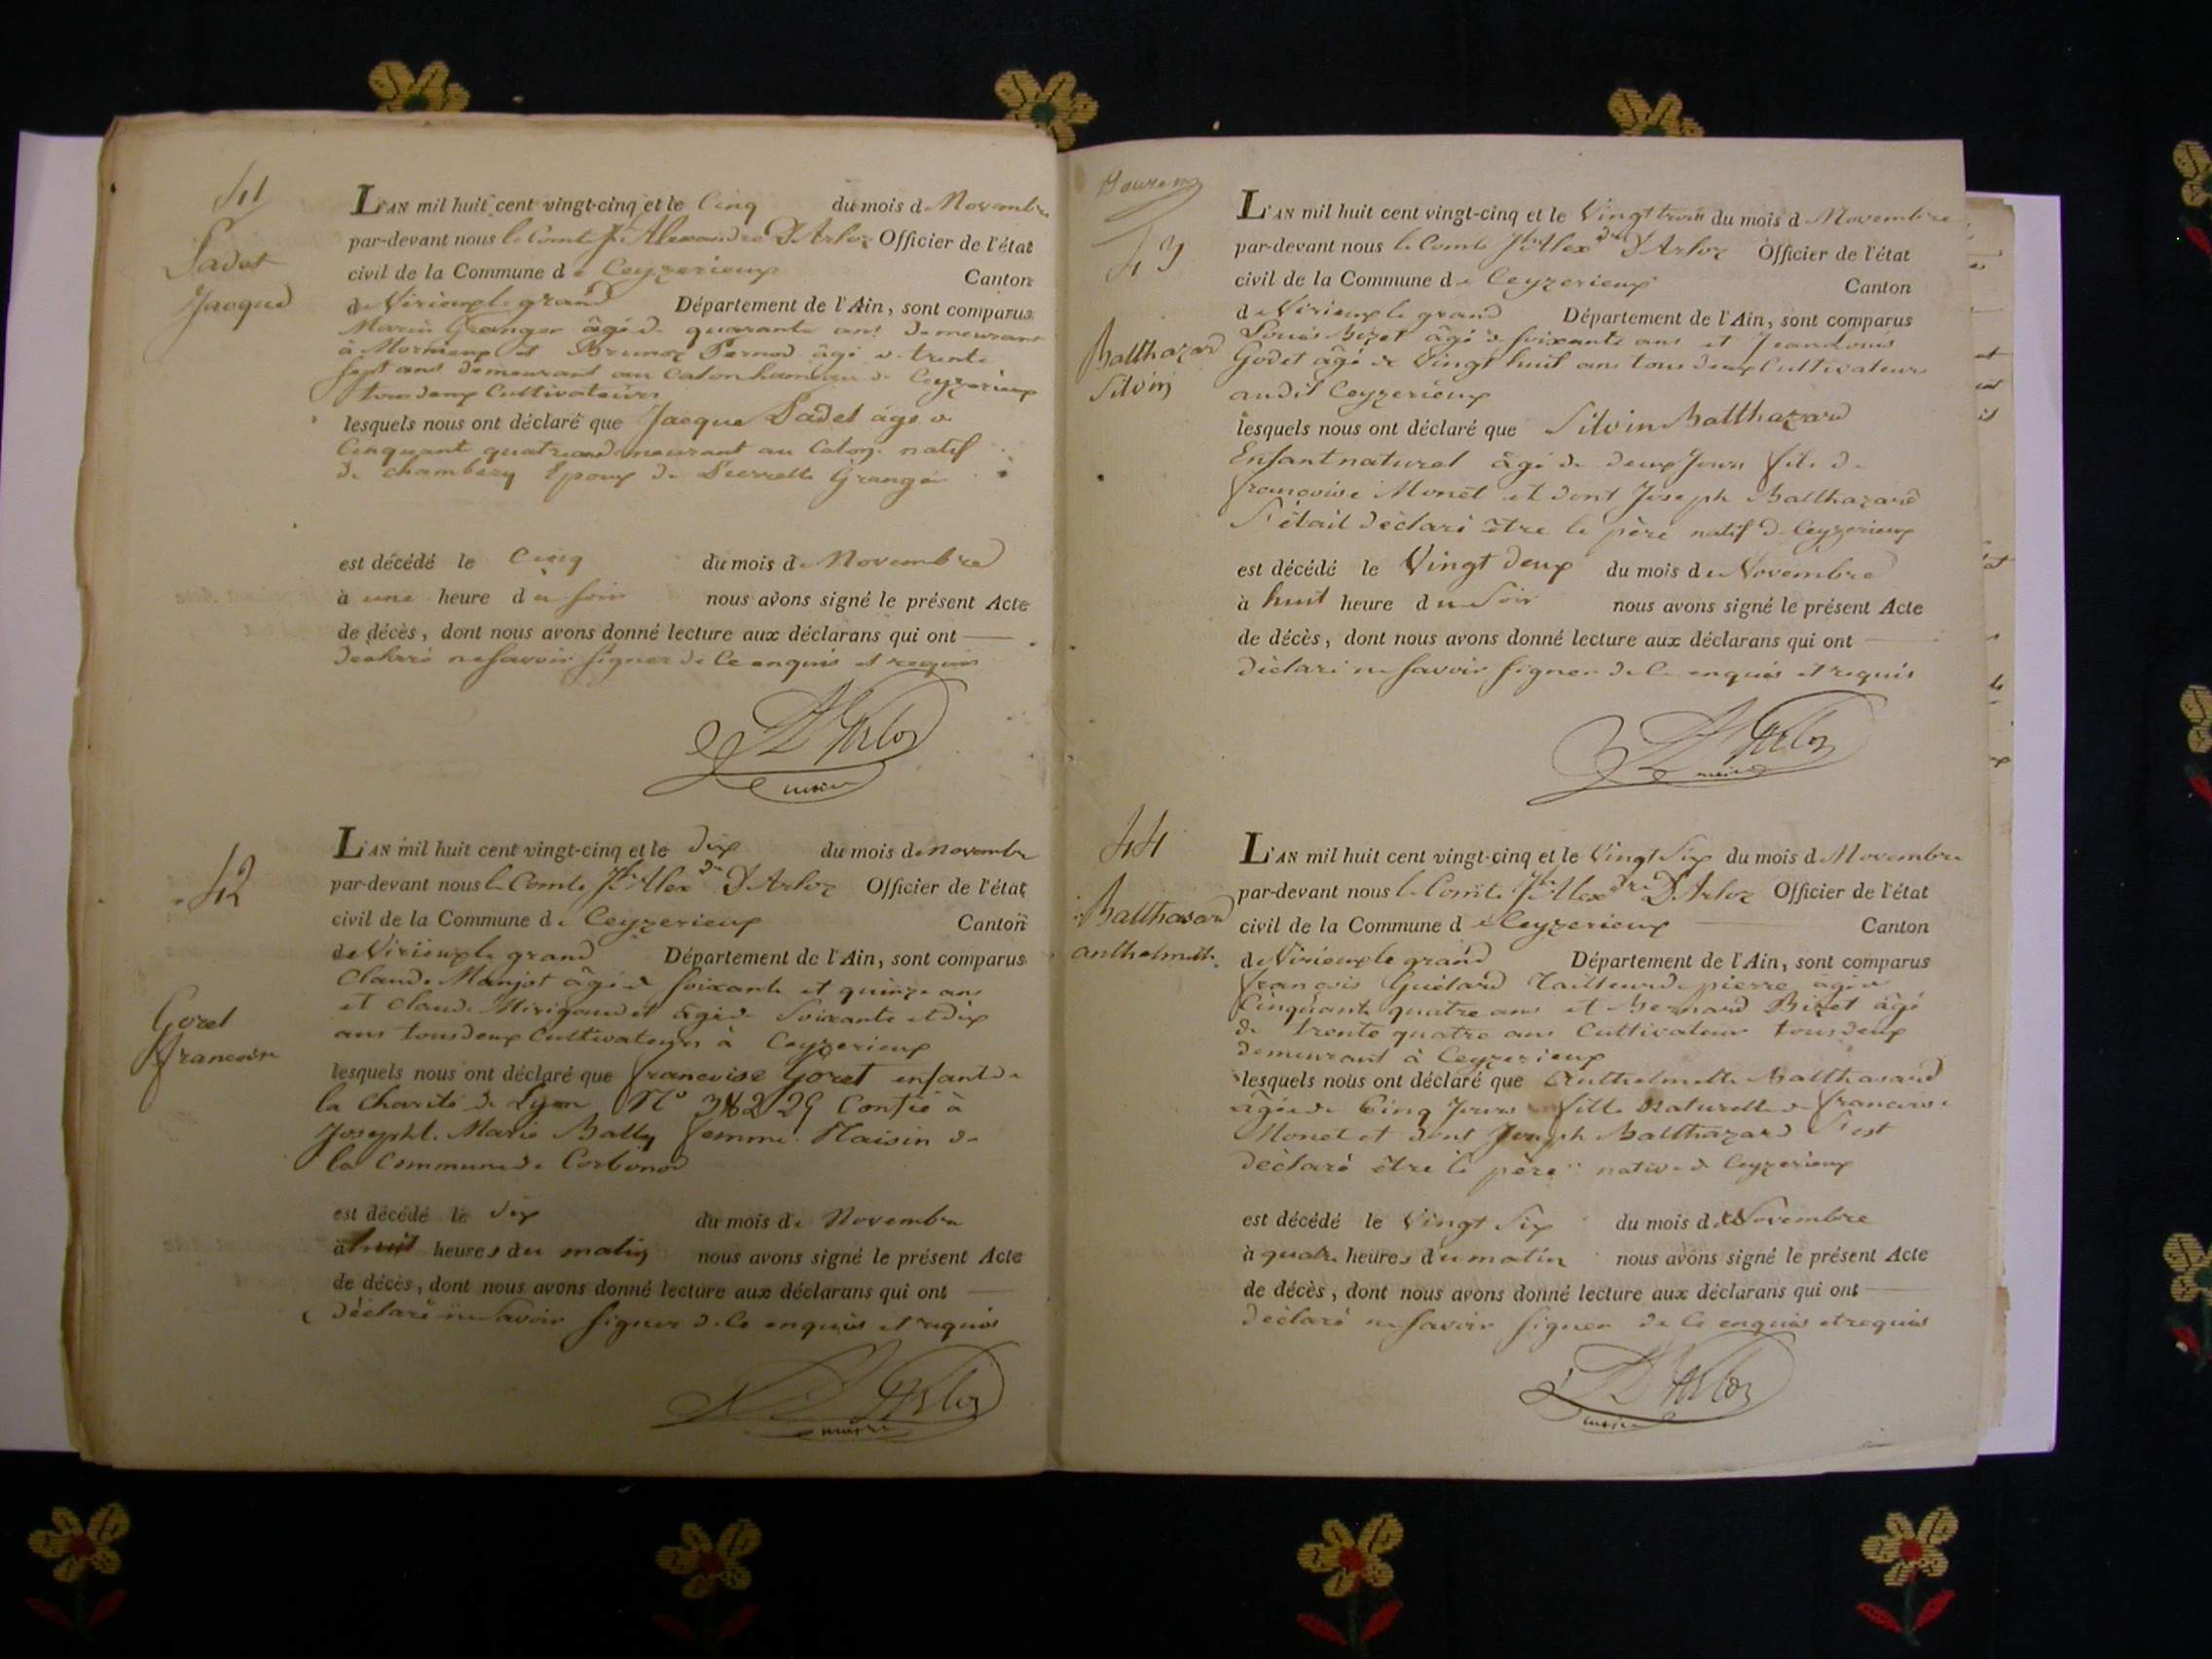 41
Padet
Jacque
L'AN mil huit cent vingt-cinq et le Cinq du mois d Novembre
par-devant nous le Comte Jh Alexandre D'Arloz Officier de l'état
civil de la Commune de Ceyzerieux Canton
de Virieux le grand Département de l'Ain, sont comparus
Marin Granger âgé de quarante ans demeurant
à et Pernod âgé de trente
sept ans demeurant au Caton hameau de Ceyzerieux
tous deux Cultivateurs
lesquels nous ont déclaré que Jacque Padet âgé de
Cinquant quatre ans demeurant au Caton natif
de chambery Epoux de Pierrette Grangé
est décédé le Cinq du mois de Novembre
à une heure du soir nous avons signé le présent Acte
de décès, dont nous avons donné lecture aux déclarans qui ont
déclaré ne savoir signer de Ce enquis et requis
D'Arloz
maire
42
Goret
francoise
L'AN mil huit cent vingt-cinq et le dix du mois de novembre
par-devant nous le Comte Jh Alexdre D'Arloz Officier de l'état
civil de la Commune de Ceyzerieux Canton
de Virieux le grand Département de l'Ain, sont comparus
Claude Manjot âgé de soixante et quinze ans
et Claude âgé de Soixante et dix
ans tous deux Cultivateurs à Ceyzerieux
lesquels nous ont déclaré que francoise Goret enfant de
la Charité de Lyon N° Confié à
Josephte Marie Bally femme de
la Commune de Corbonod
est décédé le dix du mois de Novembre
à huit heures du matin nous avons signé le présent Acte
de décès, dont nous avons donné lecture aux déclarans qui ont
déclaré ne Savoir signer de Ce enquis et requis
D'Arloz
maire
43
Balthazard
Silvin
L'AN mil huit cent vingt-cinq et le Vingt trois du mois d Novembre
par-devant nous le Comte Jh Alexdre D'Arloz Officier de l'état
civil de la Commune de Ceyzerieux Canton
de Virieux le grand Département de l'Ain, sont comparus
Louis Bizet âgé de soixante ans et Jean Louis
Godet âgé de Vingt huit ans tous deux Cultivateurs
audit Ceyzerieux
lesquels nous ont déclaré que Silvin Balthazard
Enfant naturel âgé de deux Jours fils de
francoise Monet et dont Joseph Balthazard
S'était déclaré être le père natif de Ceyzerieux
est décédé le Vingt deux du mois de Novembre
à huit heure du Soir nous avons signé le présent Acte
de décès, dont nous avons donné lecture aux déclarans qui ont
déclaré ne savoir signer de Ce enquis et requis
D'Arloz
maire
44
Balthasard
anthelmette
L'AN mil huit cent vingt-cinq et le Vingt Six du mois d Novembre
par-devant nous le Comte Jh Alexdre D'Arloz Officier de l'état
civil de la Commune de Ceyzerieux Canton
de Virieux le grand Département de l'Ain, sont comparus
francois Guélard Tailleur de pierre âgé de
Cinquante quatre ans et Bernard Bizet âgé
de trente quatre ans Cultivateur tous deux
demeurant à Ceyzerieux
lesquels nous ont déclaré que Anthelmette Balthasard
âgée de Cinq Jours fille Naturelle de francoise
Monet et dont Joseph Balthazard S'est
déclaré être le père native de Ceyzerieux
est décédé le Vingt Six du mois de Novembre
à quatre heures du matin nous avons signé le présent Acte
de décès, dont nous avons donné lecture aux déclarans qui ont
déclaré ne savoir signer de Ce enquis et requis
D'Arloz
maire